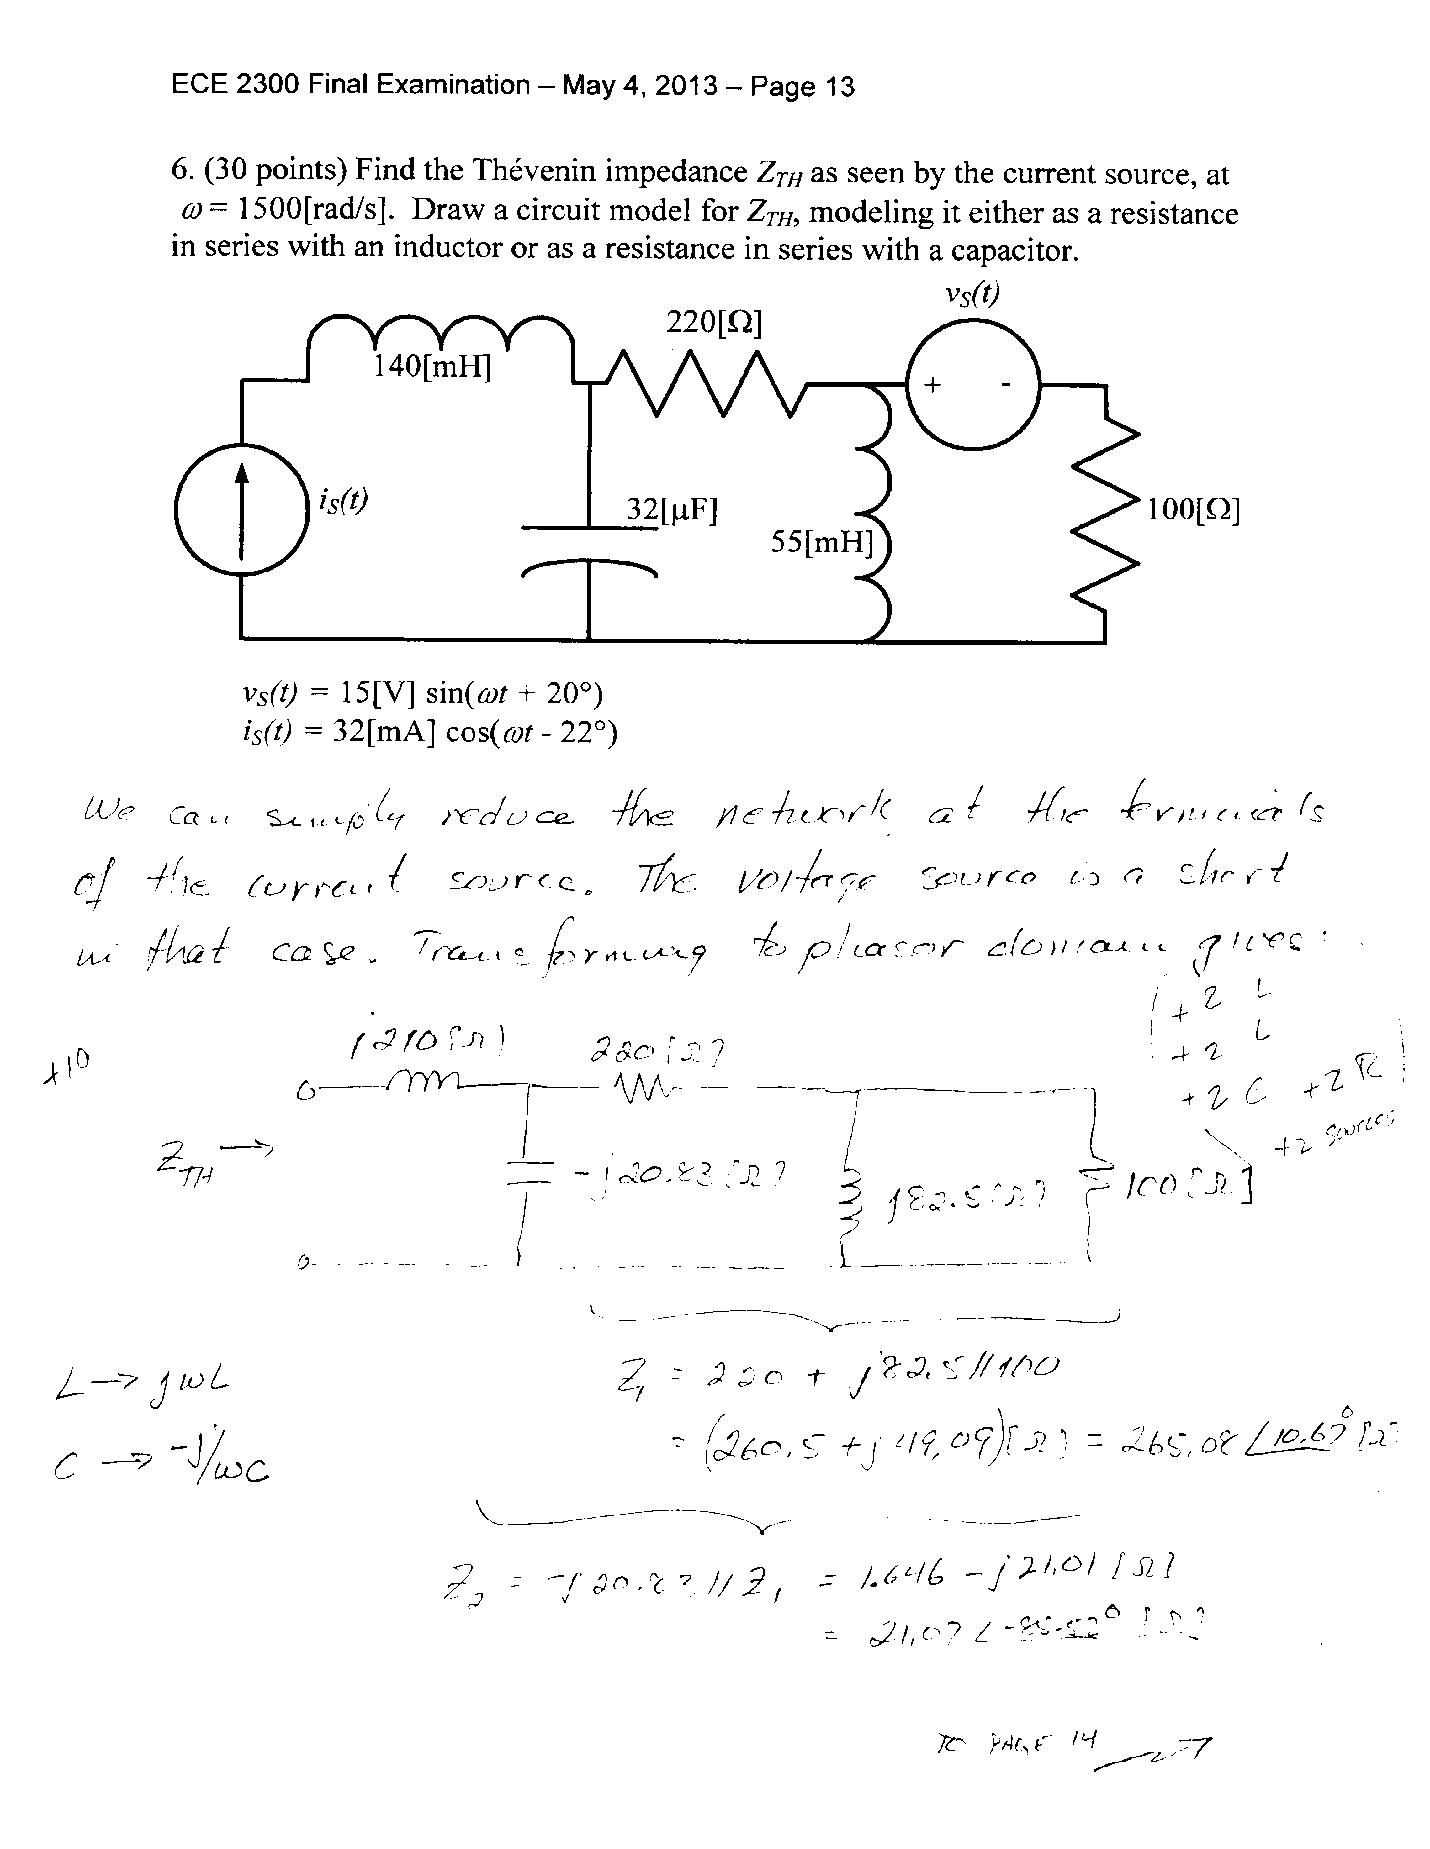 ECE 2300 Final Examination – May 4, 2013 – Page 13
6. (30 points) Find the Thévenin impedance Z_TH as seen by the current source, at
ω = 1500[rad/s]. Draw a circuit model for Z_TH, modeling it either as a resistance
in series with an inductor or as a resistance in series with a capacitor.
v_S(t)
220[Ω]
140[mH]
+ -
i_S(t)
32[μF]
100[Ω]
55[mH]
v_S(t) = 15[V] sin(ωt + 20°)
i_S(t) = 32[mA] cos(ωt - 22°)
We can simply reduce the network at the terminals
of the current source. The voltage source is a short
in that case. Transforming to phasor domain gives:
+2 L
+2 L
+2 C +2 R
+2 sources
+10
j210[Ω]
220[Ω]
Z_TH →
-j20.83[Ω]
j82.5[Ω]
100[Ω]
L → jωL
C → -j/ωC
Z_1 = 220 + j82.5 // 100
= (260.5 + j49.09)[Ω] = 265.08 ∠10.67° [Ω]
Z_2 = -j20.83 // Z_1 = 1.646 - j21.01 [Ω]
= 21.07 ∠-85.52° [Ω]
TO PAGE 14 →